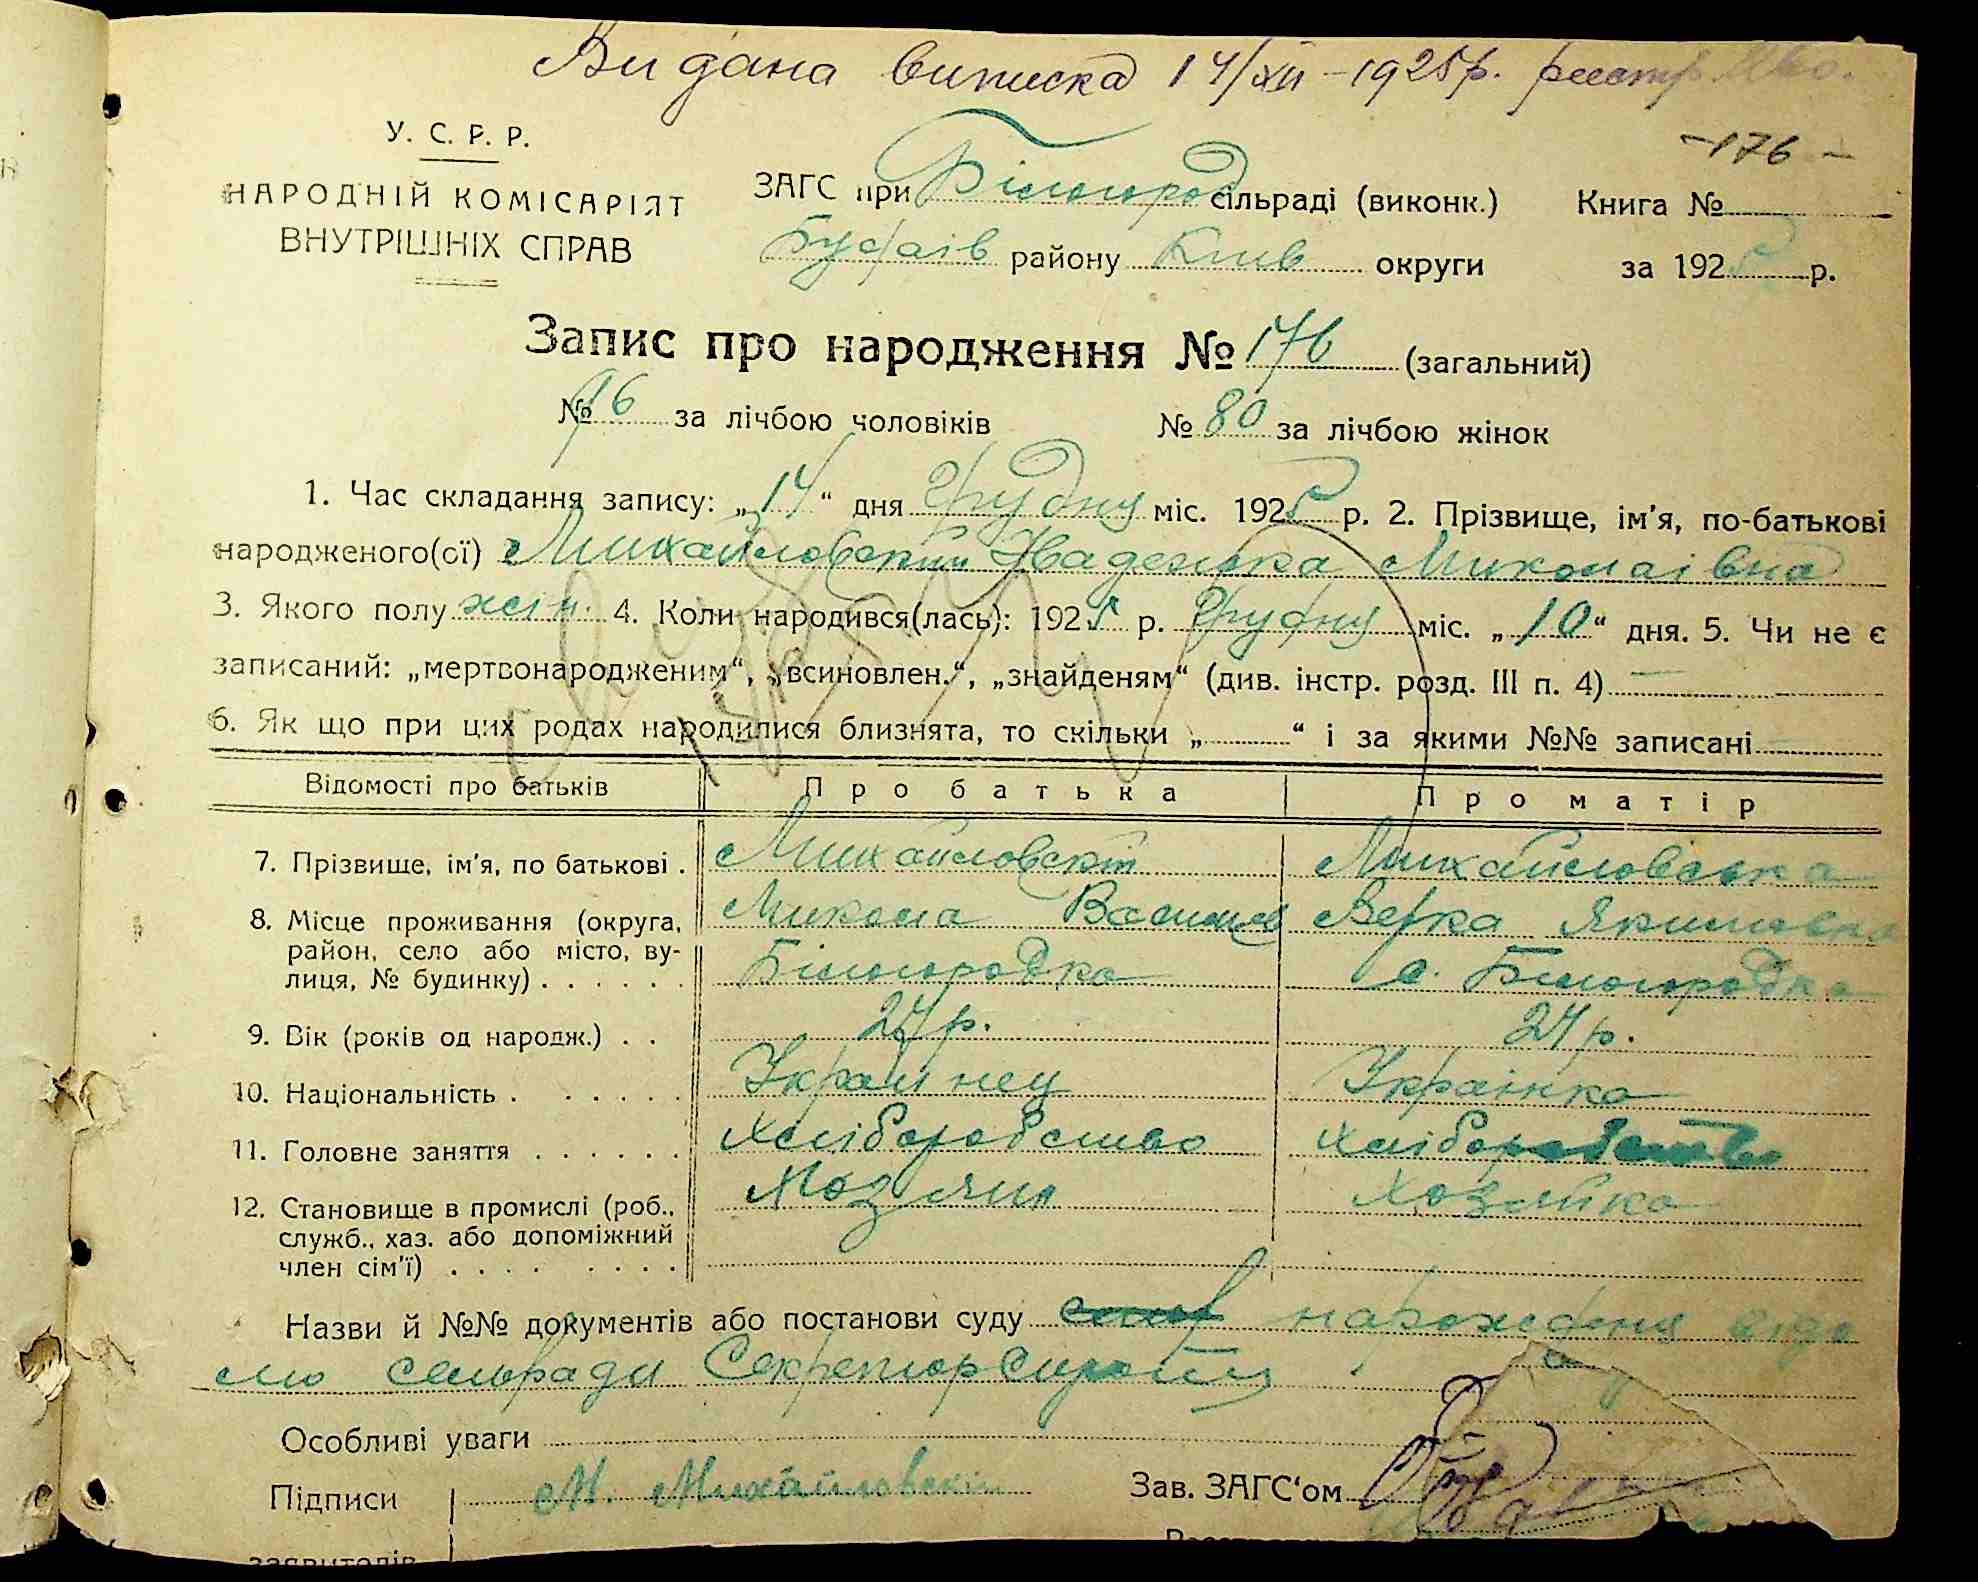 Видана виписка 14/XII – 1925р. реєстр.
– 176 –
У. С. Р. Р.
НАРОДНІЙ КОМІСАРІЯТ
ВНУТРІШНІХ СПРАВ
ЗАГС при Білогород сільраді (виконк.) Книга №
Будаїв району Київ округи за 1925 р.
Запис про народження № 176 (загальний)
№ 96 за лічбою чоловіків № 80 за лічбою жінок
1. Час складання запису: „14“ дня Грудня міс. 1925 р. 2. Прізвище, ім'я, по-батькові
народженого(ої) Михайловский Надежка Миколаівна
3. Якого полу жін. 4. Коли народився(лась): 1925 р. Грудня міс. „10“ дня. 5. Чи не є
записаний: „мертвонародженим“, „всиновлен.“, „знайденям“ (див. інстр. розд. III п. 4)
6. Як що при цих родах народилися близнята, то скільки „ “ і за якими №№ записані
Відомості про батьків Про батька Про матір
7. Прізвище, ім'я, по батькові . Михайловскій Михайловська
Микола Васильов Верка Якимовна
8. Місце проживання (округа, район, село або місто, вулиця, № будинку) . . . . . . Білогородка с. Білогородка
9. Вік (років од народж.) . . 24 р. 24 р.
10. Національність . . . . . . Украінец Украінка
11. Головне заняття . . . . . . Хліборобство Хліборобство
12. Становище в промислі (роб., служб., хаз. або допоміжний член сім'ї) . . . . . . . . Хозяин Хозяйка
Назви й №№ документів або постанови суду нарождения відо
мо сельради Секретор
Особливі уваги
Підписи М. Михайловскій Зав. ЗАГС'ом
заявителів